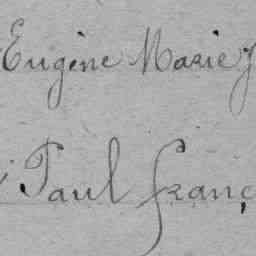 Eugène Marie J
Paul Franç